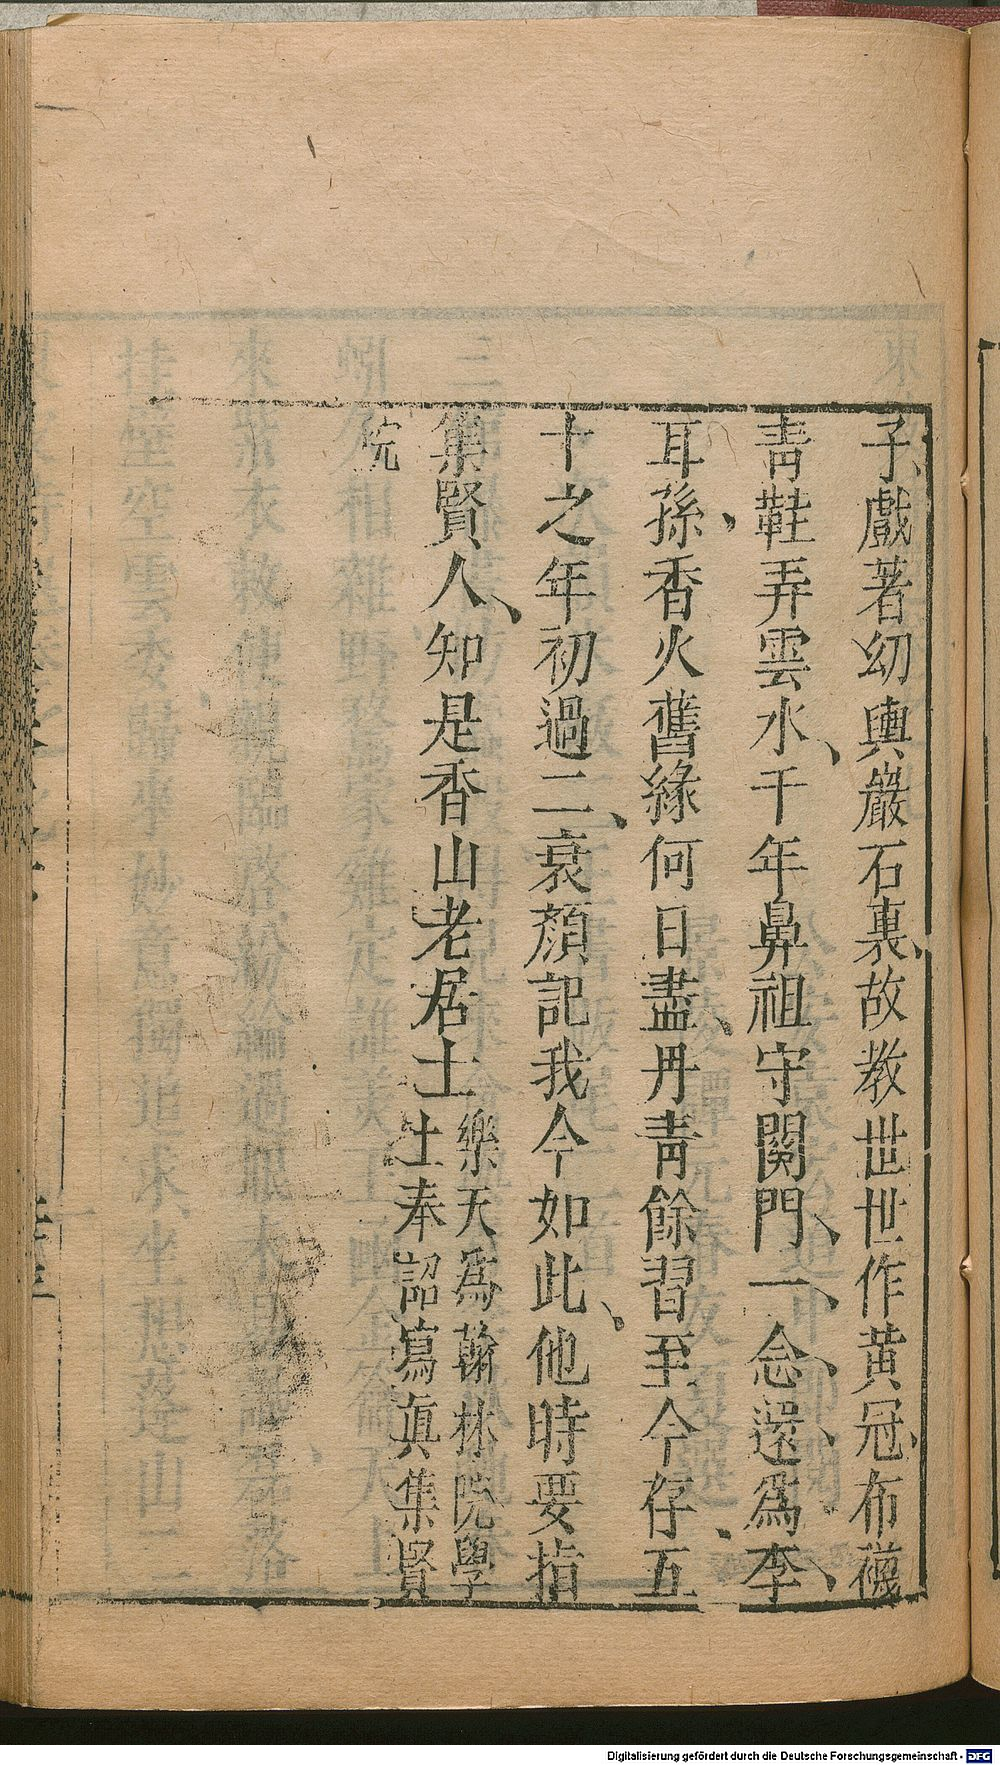 子戲著幼輿巖石裏故教世世作黄冠布襪
青鞋弄雲水千年鼻祖守關門一念還爲李
耳孫香火舊緣何日盡丹青餘習至今存五
十之年初過二衰顔記我今如此他時要指
集賢人知是香山老居士
樂天爲翰林院學
士奉詔寫真集賢
院
Digitalisierung gefördert durch die Deutsche Forschungsgemeinschaft - DFG